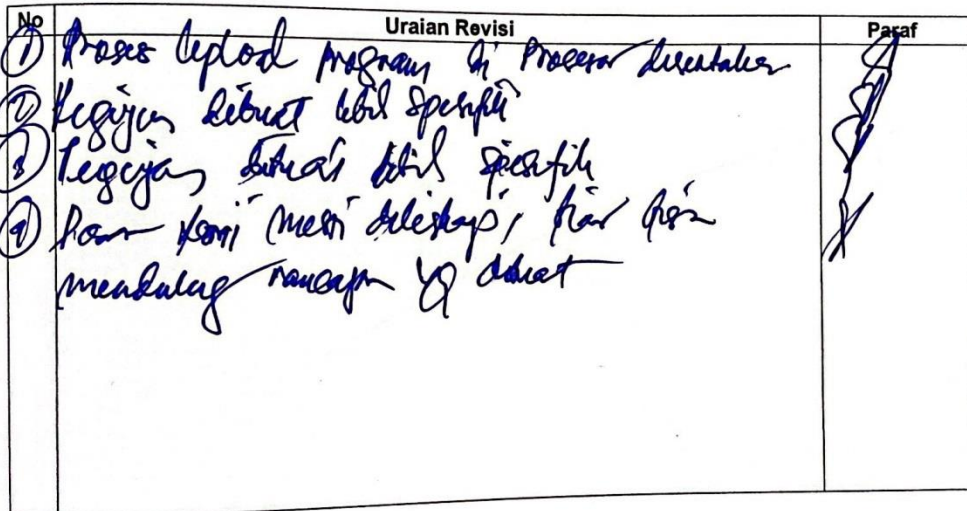 No Uraian Revisi Paraf
① Proses upload program di Prosesor disertakan
② Pengujian dibuat lebih spesifik
③ Pengujian dibuat lebih spesifik
④ mesti dilengkapi, biar bisa
mendukung rancangan yg dibuat